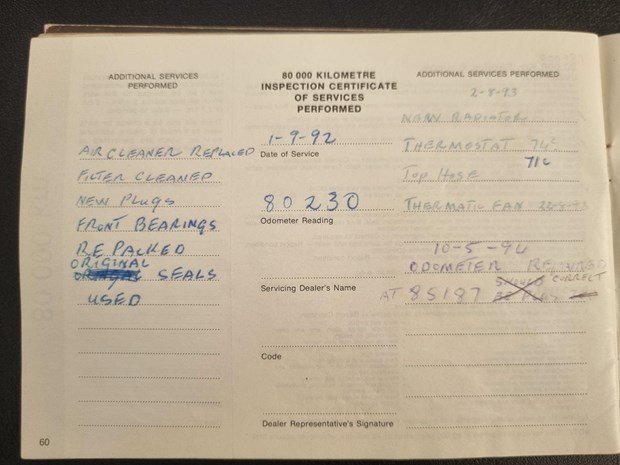 ADDITIONAL SERVICES
PERFORMED
AIR CLEANER REPLACED
FILTER CLEANED
NEW PLUGS
FRONT BEARINGS
REPACKED
ORIGINAL
SEALS
USED
60
80 000 KILOMETRE
INSPECTION CERTIFICATE
OF SERVICES
PERFORMED
1-9-92
Date of Service
80230
Odometer Reading
Servicing Dealer's Name
Code
Dealer Representative's Signature
ADDITIONAL SERVICES PERFORMED
2-8-93
NEW RADIATOR
THERMOSTAT 74c
71c
TOP HOSE
THERMATIC FAN
10-5-94
ODOMETER
CORRECT
AT 85187